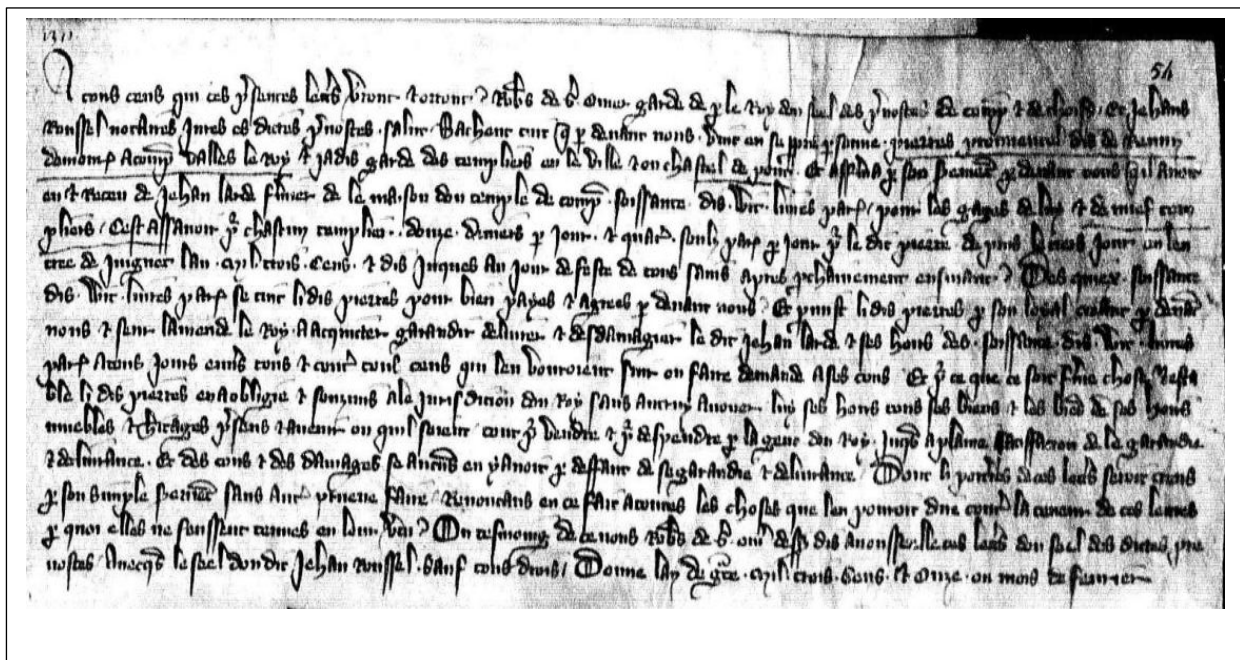 1311
54
A tous ceus qui ces p̃sentes lett̃s verront et orront Rob̃s de S. Omer garde de p le Roy dou seel des p̃vostes de comp̃ et de choisi Et Jehans
Roussel notaires Jures es dictes p̃vostes salut Sachent tuit q̃ p devant nous vint en sa ppre p̃sonne pierres dis de
demor̃ a comp̃ valles le Roy et Jadis garde des templiers en la ville et ou chastel de Et afferma p son serment p devant nous quil avoit
eu et Receu de Jehan larde fermier de la maison dou temple de comp̃ soissante dis wit livres par̃ pour les gages de luy et de nuef tem
pliers Cest assavoir p̃r chascun templier douze deniers p Jour et quat̃ soulz par̃ p Jour p̃r le dit pierre de puis le tiers Jour en len
tree de Juigner lan mil trois Cens et dis Jusques au Jour de feste de tous sains apres prchainement ensivant Des quiex soissante
dis wit livres par̃ se tint li dis pierres pour bien payes et agrees p devant nous Et p̃mist li dis pierres p son loyal creant p devant
nous et seur lamende le Roy a acquiter garandir delivrer et desdamagier le dit Jehan larde et ses hoirs des soissante dis wit livres
par̃ a tous Jours envers tous et cont̃ touz ceus qui len vouroient sivir ou faire demande a ses cous Et p̃r ce que ce soit ferme chose et esta
ble li dis pierres en a obligie et souzmis a la Jurisdicion dou Roy sans autrui avouer luy ses hoirs tous ses biens et les biens de ses hoirs
muebles et heritages p̃sens et avenir ou quil soient tout p̃r vendre et p̃r despendre p la gent dou Roy Jusq̃s a plaine satisfacion de la garandie
et delivrance Et des cous et des damages se aucuns en y avoit p deffaut de sa garandie et delivrance Dont li porteres de ces lett̃s seroit creus
p son simple serment sans aut̃ prueve faire Renoncans en ce fait a toutes les choses que len pouroit dire cont̃ la teneur de ces lettres
p quoi elles ne feussent tenues en leur vertu En tesmoing de ce nous Rob̃s de S. om̃ dess̃ dis avons seelle ces lett̃s dou seel des dictes pre
vostes avecq̃s le seel dou dit Jehan Roussel sauf tous drois Donne lan de grace mil trois Cens et Onze ou mois de fevrier